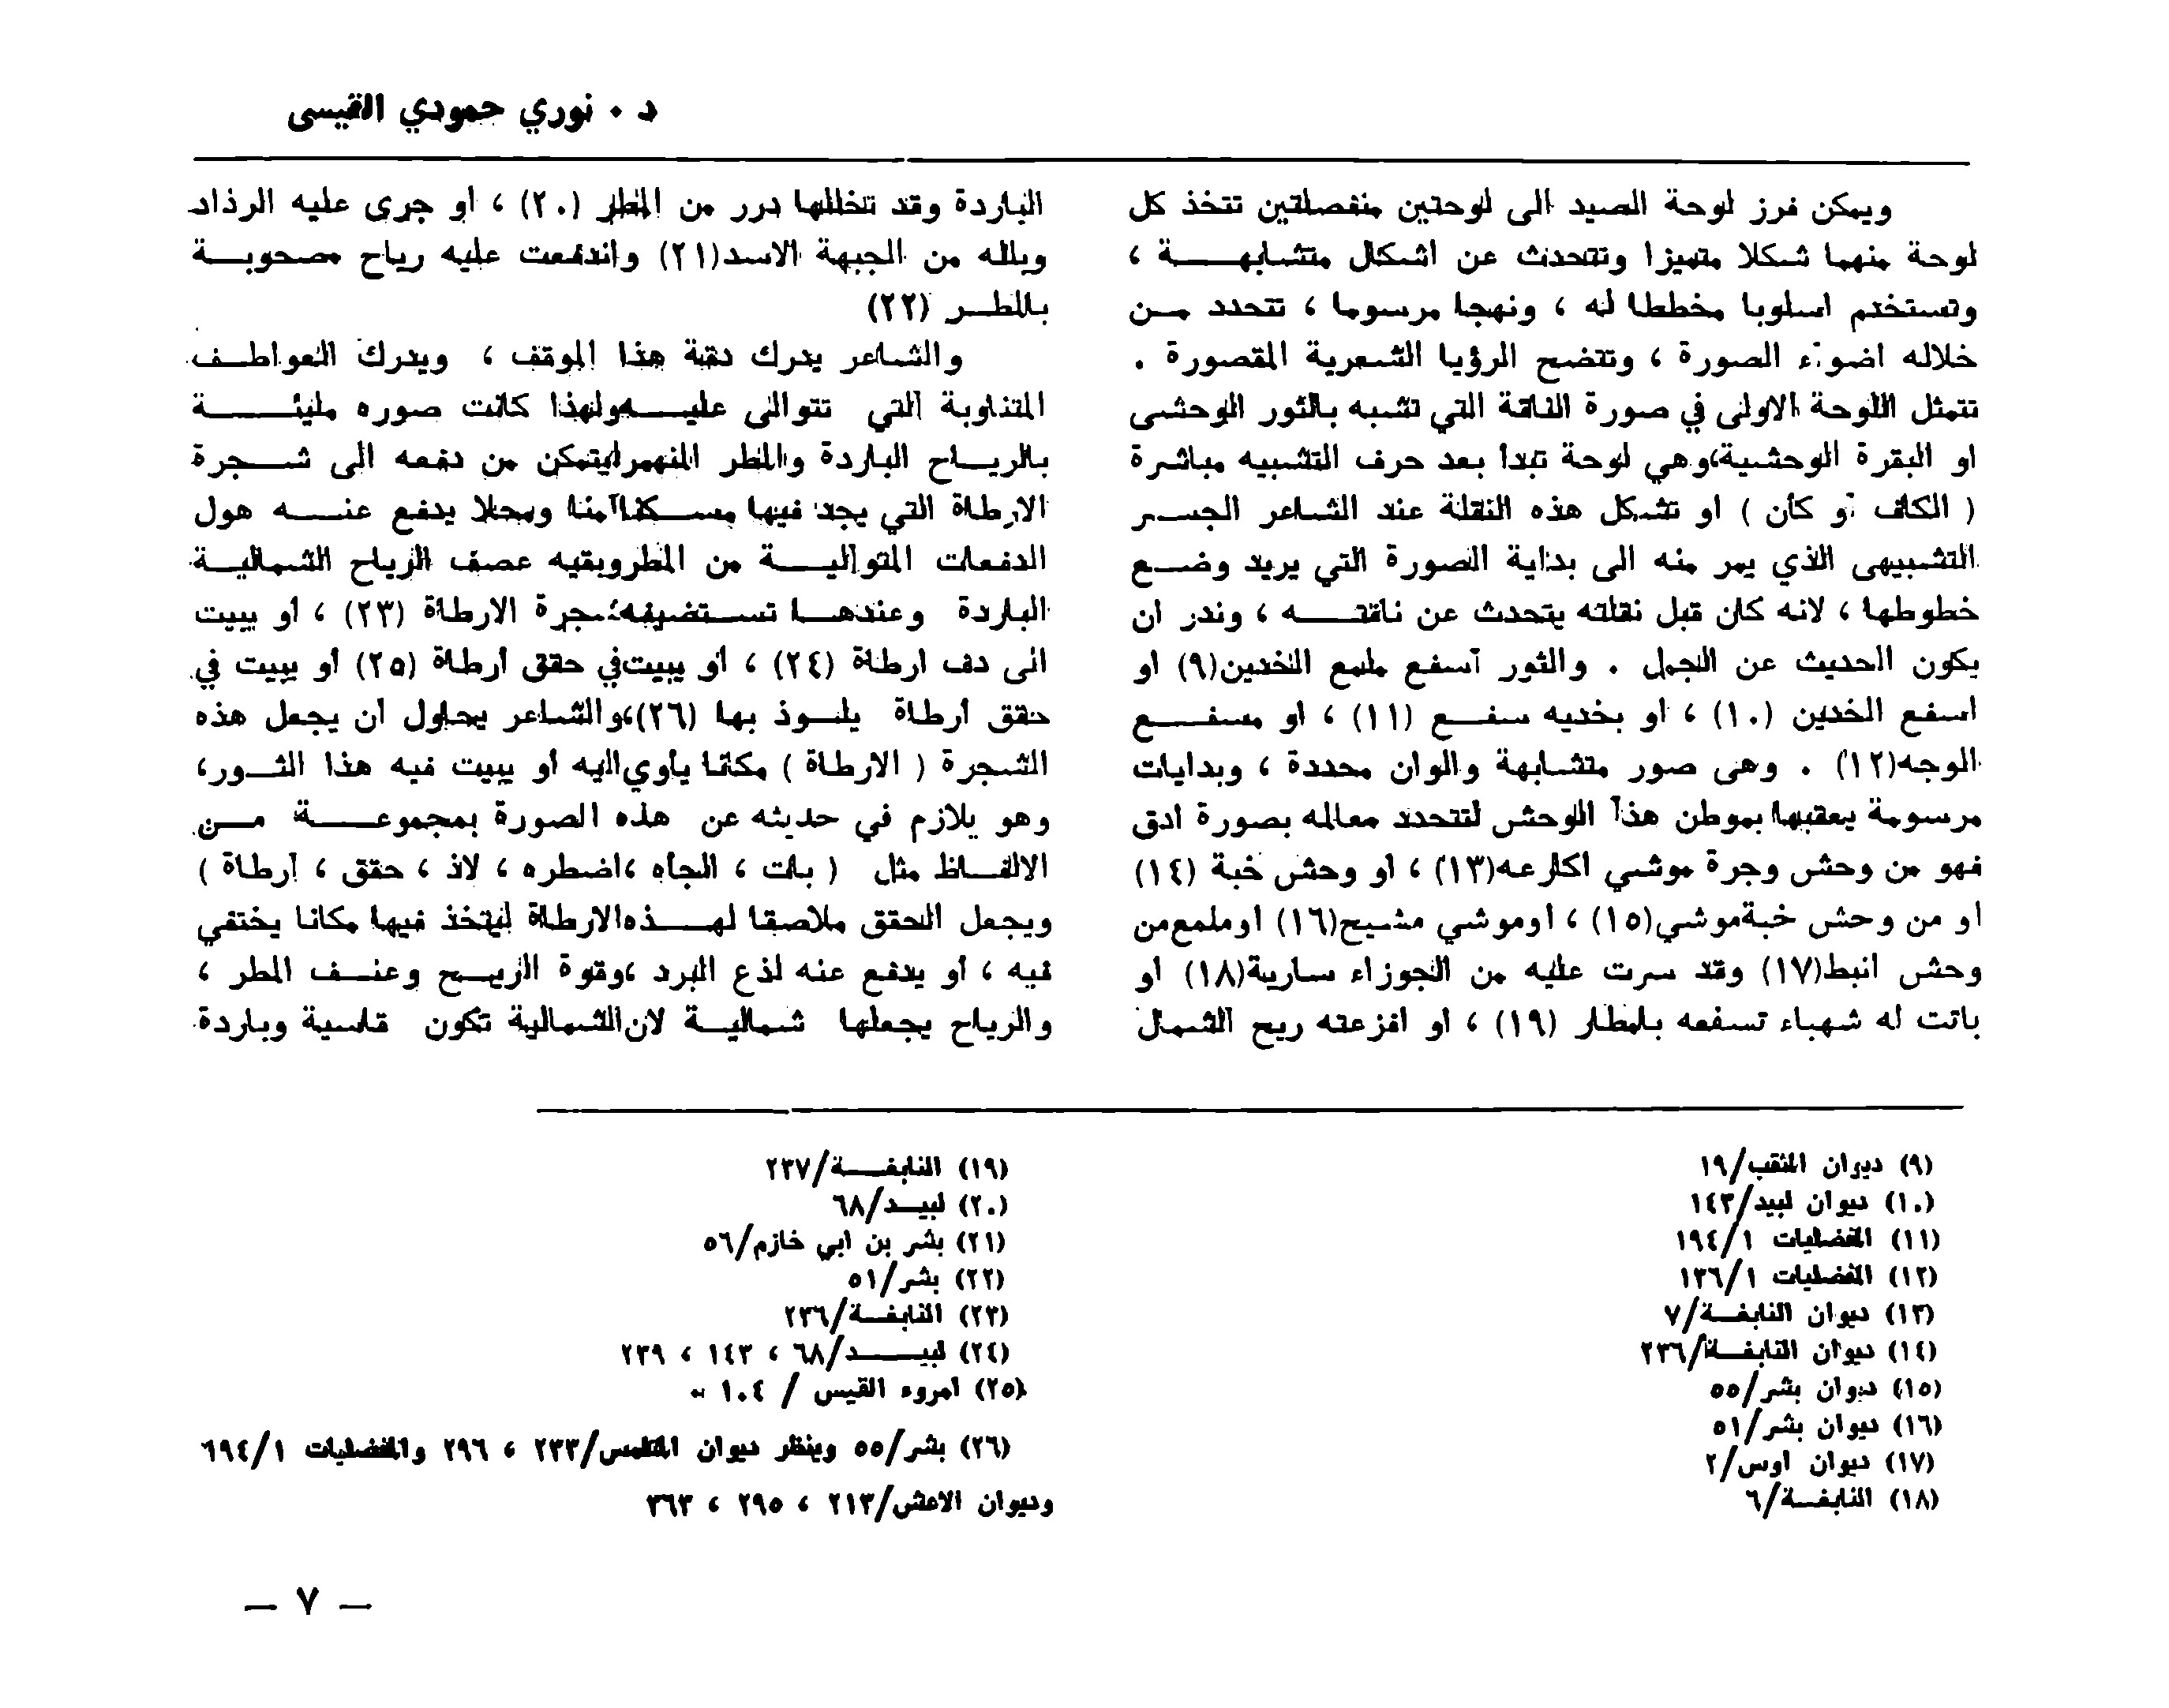 د ٠ نوري حمودي القيسي
ويمكن فرز لوحة الصيد الى لوحتين منفصلتين تتخذ كل
لوحة منهما شكلا متميزا وتتحدث عن اشكال متشابهة ،
وتستخدم اسلوبا مخططا له ، ونهجا مرسوما ، تتحدد من
خلاله اضواء الصورة ، وتتضح الرؤيا الشعرية المقصورة .
تتمثل اللوحة الاولى في صورة الناقة التي تشبه بالثور الوحشى
او البقرة الوحشية،وهي لوحة تبدا بعد حرف التشبيه مباشرة
( الكاف أو كأن ) او تشكل هذه النقلة عند الشاعر الجسر
التشبيهى الذي يمر منه الى بداية الصورة التي يريد وضع
خطوطها ، لانه كان قبل نقلته يتحدث عن ناقته ، وندر ان
يكون الحديث عن الجمل . والثور أسفع ملمع الخدين(٩) او
اسفع الخدين (١٠) ، او بخديه سفع (١١) ، او مسفع
الوجه(١٢) . وهى صور متشابهة والوان محددة ، وبدايات
مرسومة يعقبها بموطن هذا الوحش لتتحدد معالمه بصورة ادق
فهو من وحش وجرة موشي اكارعه(١٣) ، او وحش خبة (١٤)
او من وحش خبةموشي(١٥) ، اوموشي مشيح(١٦) اوملمع من
وحش انبط(١٧) وقد سرت عليه من الجوزاء سارية(١٨) او
باتت له شهباء تسفعه بامطار (١٩) ، او افزعته ريح الشمال
الباردة وقد تتخللها درر من المطر (٢٠) ، او جرى عليه الرذاذ
وبلله من الجبهة الاسد(٢١) واندفعت عليه رياح مصحوبة
بالمطر (٢٢)
والشاعر يدرك دقة هذا الموقف ، ويدرك العواطف
المتناوبة التي تتوالى عليه ولهذا كانت صوره مليئة
بالرياح الباردة والمطر المنهمرليتمكن من دفعه الى شجرة
الارطاة التي يجد فيها مسكناآمنا ومحلا يدفع عنه هول
الدفعات المتوالية من المطرويقيه عصف الرياح الشمالية
الباردة وعندها تستضيفه شجرة الارطاة (٢٣) ، أو يبيت
الى دف ارطاة (٢٤) ، أو يبيت في حقق أرطاة (٢٥) أو يبيت في
حقق أرطاة يلوذ بها (٢٦)،والشاعر يحاول أن يجعل هذه
الشجرة ( الارطاة ) مكانا يأوي اليه أو يبيت فيه هذا الثور،
وهو يلازم في حديثه عن هذه الصورة بمجموعة من
الالفاظ مثل ( بات ، الجأه ،اضطره ، لاذ ، حقق ، أرطاة )
ويجعل الحقق ملاصقا لهذه الارطاة ليتخذ فيها مكانا يختفي
فيه ، أو يدفع عنه لذع البرد ،وقوة الريح وعنف المطر ،
والرياح يجعلها شمالية لان الشمالية تكون قاسية وباردة
(٩) ديوان المثقب/١٩
(١٠) ديوان لبيد/١٤٣
(١١) المفضليات ١/١٩٤
(١٢) المفضليات ١/١٣٦
(١٣) ديوان النابغة/٧
(١٤) ديوان النابغة/٢٣٦
(١٥) ديوان بشر/٥٥
(١٦) ديوان بشر/٥١
(١٧) ديوان اوس/٢
(١٨) النابغة/٦
(١٩) النابغة/٢٣٧
(٢٠) لبيد/٦٨
(٢١) بشر بن ابي خازم/٥٦
(٢٢) بشر/٥١
(٢٣) النابغة/٢٣٦
(٢٤) لبيد/٦٨ ، ١٤٣ ، ٢٣٩
(٢٥) امروء القيس / ١٠٤
(٢٦) بشر/٥٥ وينظر ديوان المتلمس/٢٣٣ ، ٢٩٦ والمفضليات ١/١٩٤
وديوان الاعش/٢١٣ ، ٢٩٥ ، ٣٦٣
— ٧ —